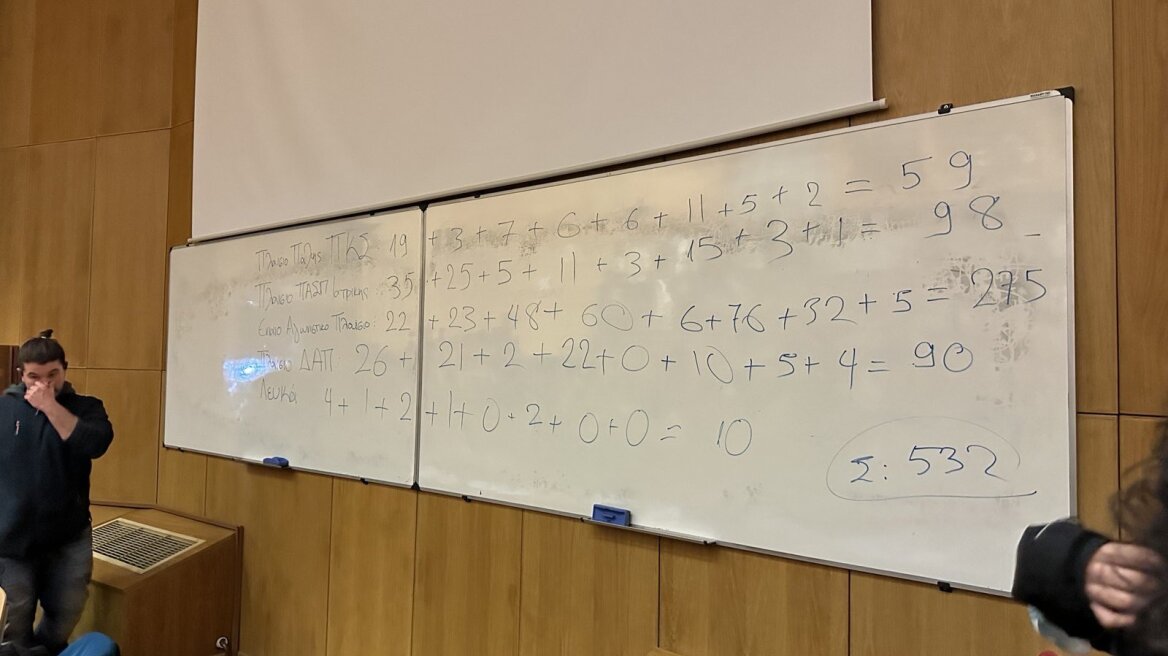 Πλαίσιο Πάλης ΠΚΣ 19 + 3 + 7 + 6 + 6 + 11 + 5 + 2 = 59
Πλαίσιο ΠΑΣΠ Ιατρικής: 35 + 25 + 5 + 11 + 3 + 15 + 3 + 1 = 98
Ενιαίο Αγωνιστικό Πλαίσιο: 22 + 23 + 48 + 60 + 6 + 76 + 32 + 5 = 275
Πλαίσιο ΔΑΠ: 26 + 21 + 2 + 22 + 0 + 10 + 5 + 4 = 90
Λευκά 4 + 1 + 2 + 1 + 0 + 2 + 0 + 0 = 10
Σ: 532